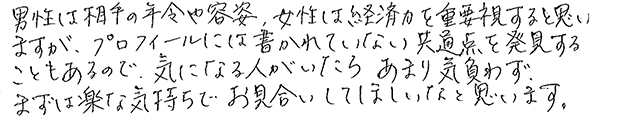 男性は相手の年令や容姿、女性は経済力を重要視すると思い
ますが、プロフィールには書かれていない共通点を発見する
こともあるので、気になる人がいたら あまり気負わず、
まずは楽な気持ちで お見合いしてほしいなと思います。